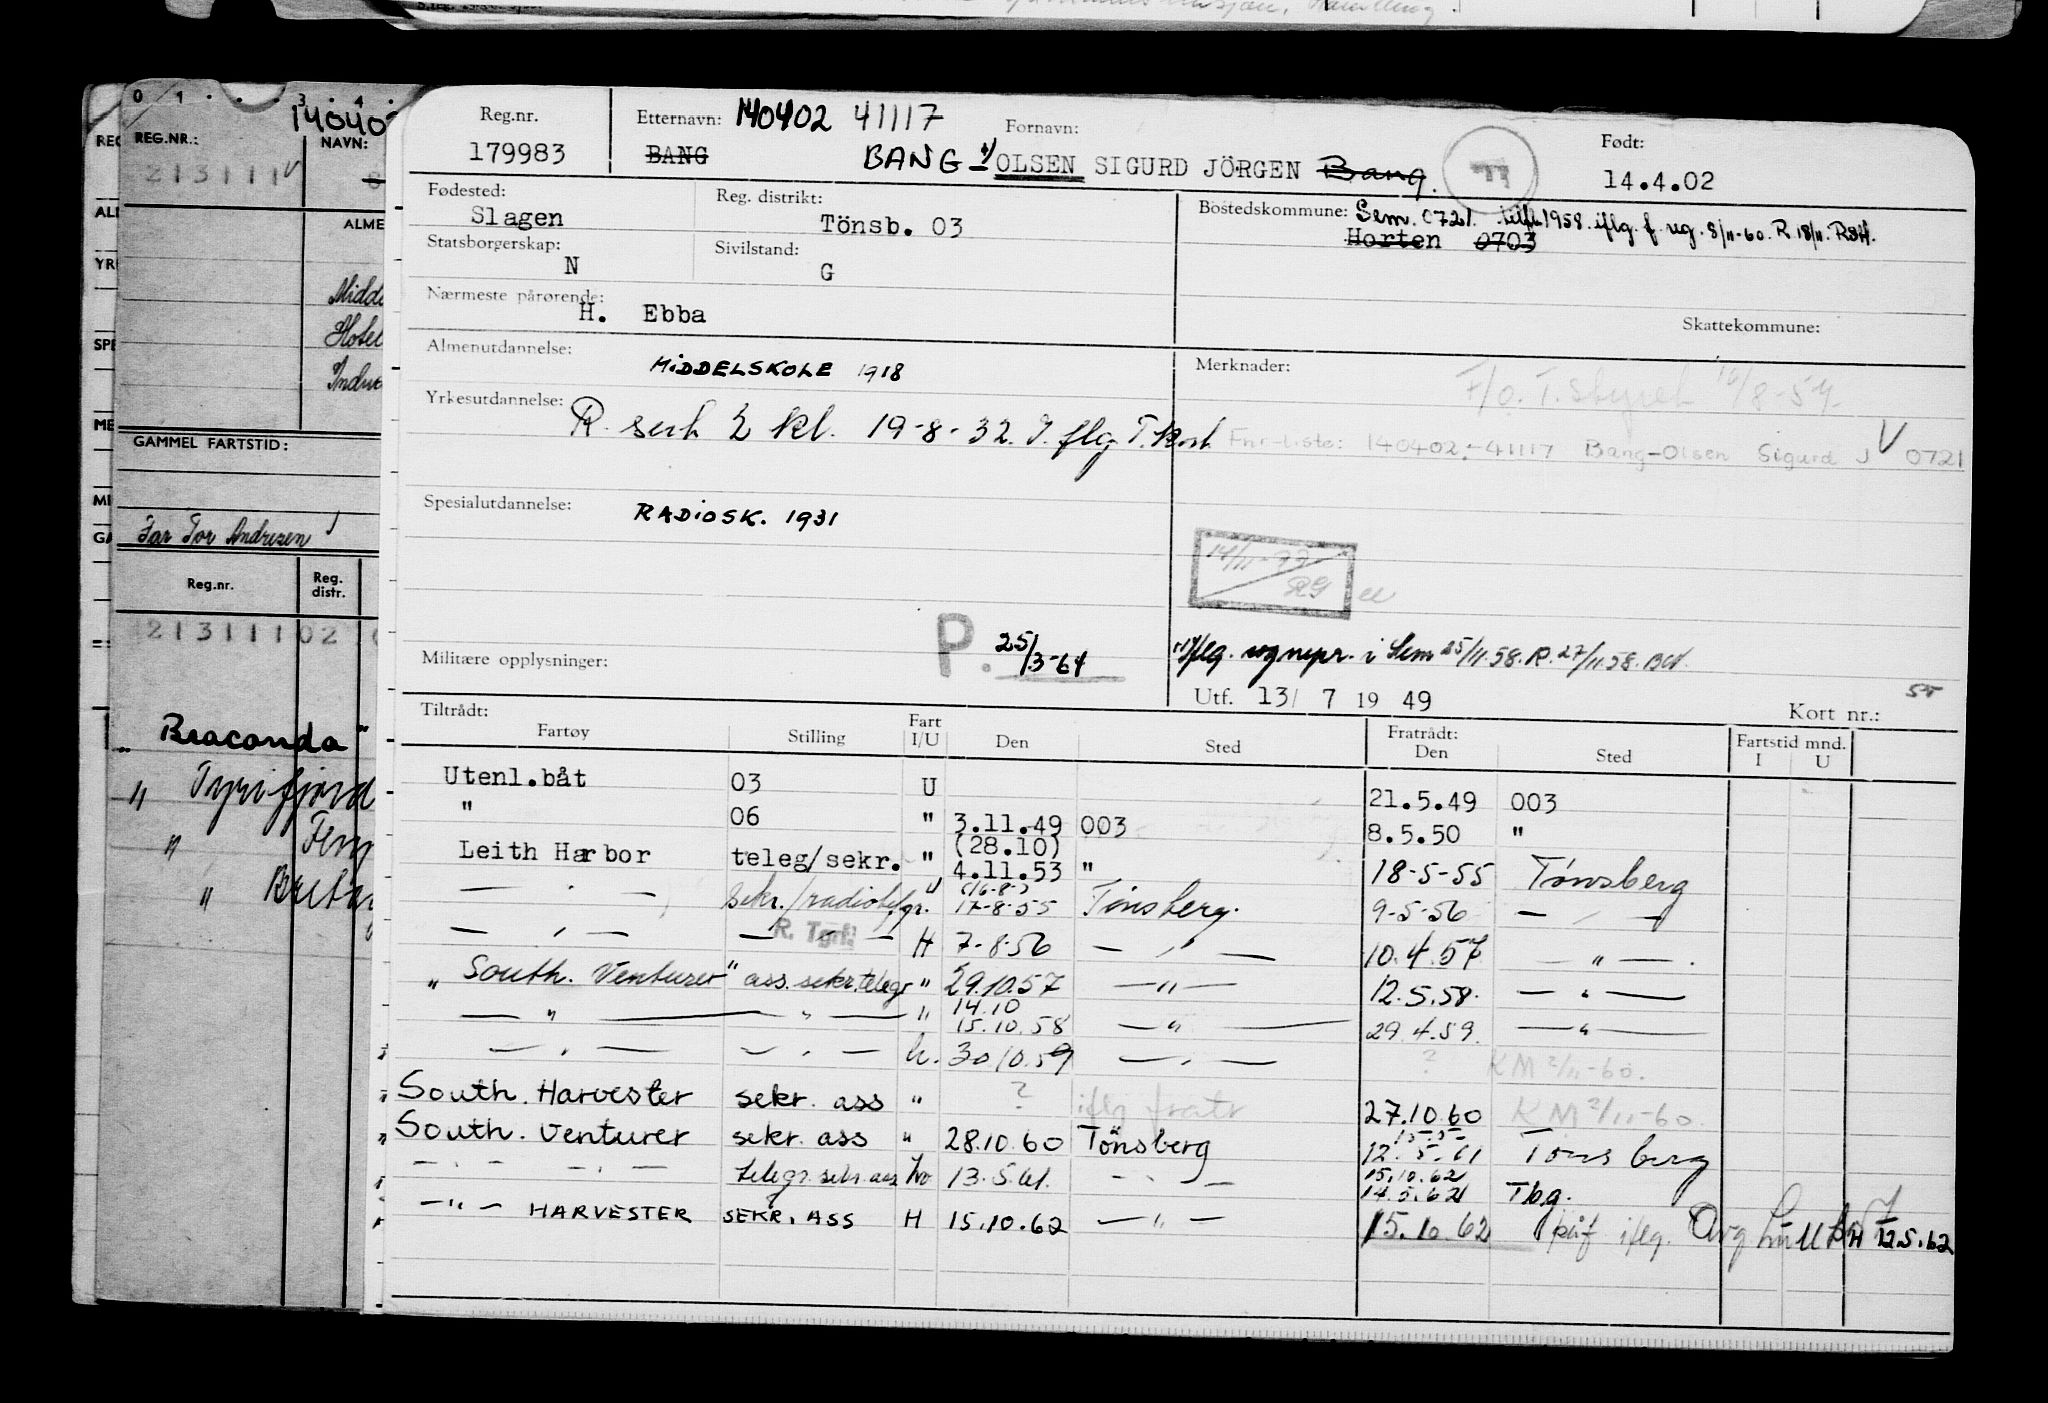 0 1 . . . 3 . 4 .
REG.NR.:
NAVN:
213111 V
ALME
Midde
Hotel
GAMMEL FARTSTID:
Far Tor Andresen
Reg.nr.
Reg. distr.
213111 02
" Braconda "
" Tyrifjord
"
"
Reg.nr.
179983
Etternavn: 140402 41117
Fornavn:
BANG BANG OLSEN SIGURD JÖRGEN Bang.
Født:
14.4.02
Fødested:
Slagen
Reg. distrikt:
Tönsb. 03
Bostedskommune: Sem. 0721. 1958. iflg. f. reg. 8/11-60. R 18/11.
Horten 0703
Statsborgerskap:
N
Sivilstand:
G
Nærmeste pårørende:
H. Ebba
Skattekommune:
Almenutdannelse:
MIDDELSKOLE 1918
Merknader:
F/o. T. Styret 16/8-54.
Yrkesutdannelse:
R. sert 2 kl. 19-8-32. I. flg. T. kort
Fnr-liste: 140402-41117 Bang-Olsen Sigurd J V 0721
Spesialutdannelse:
RADIOSK. 1931
14/11-77
RG
P. 25/3-64
Militære opplysninger:
i Sem 25/11.58. R. 27/11.58.
Utf. 13/ 7 19 49
Kort nr.:
Tiltrådt:
Fartøy
Stilling
Fart I/U
Den
Sted
Fratrådt:
Den
Sted
Fartstid mnd.
I U
Utenl.båt 03 U 21.5.49 003
" 06 " 3.11.49 003 8.5.50 "
(28.10)
Leith Harbor teleg/sekr. " 4.11.53 " 18-5-55 Tønsberg
(16-8-)
— " — sekr./radiotelgr. " 17-8-55 Tönsberg. 9-5-56 — " —
— " — R. Tgrf. — " — H 7-8-56 — " — 10.4.57 — " —.
" South. Venturer " ass. sekr. telegr " 29.10.57 — " — 12.5.58. — " —
14.10
— " — — " — " 15.10.58 — " — 29.4.59. — " —
— " — — " — h. 30.10.59 — " — ? KM 2/11-60.
South. Harvester sekr. ass " ? iflg fratr 27.10.60 KM 2/11-60.
" South. Venturer sekr. ass " 28.10.60 Tönsberg 12.5.61 Tönsberg
15.10.62
— " — — " — telegr. sekr. ass 13.5.61. — " — 14.5.62 Tbg.
— " — HARVESTER SEKR. ASS H 15.10.62 — " — 15.10.62 påf iflg. 12.5.62